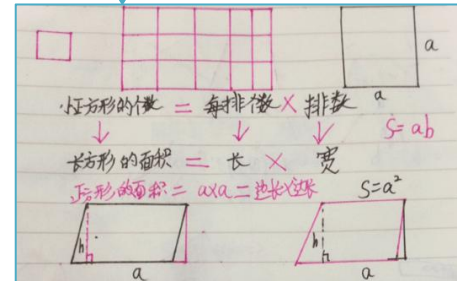 a
a
小正方形的个数 = 每排个数 × 排数
S=ab
长方形的面积 = 长 × 宽
正方形的面积 = a×a = 边长×边长 S=a²
h
h
a
a